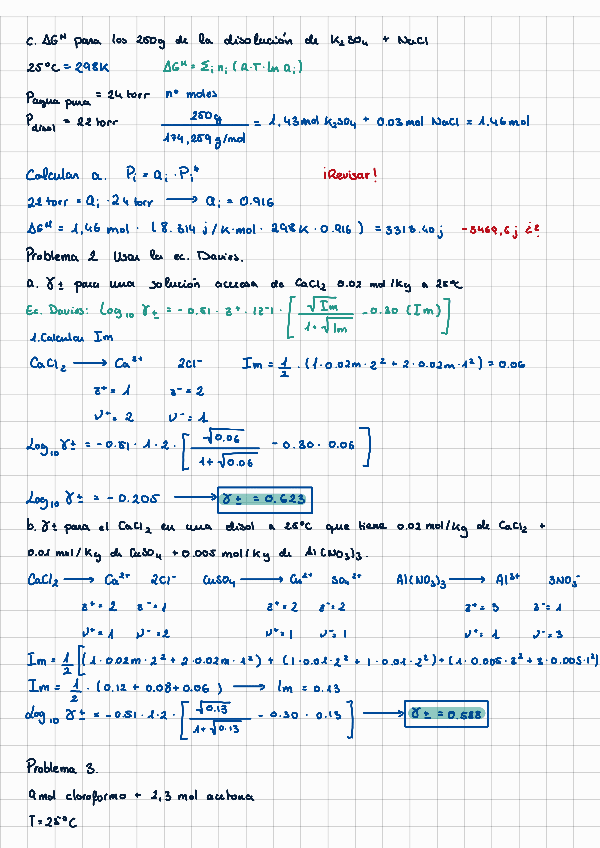 c. ΔGᴹ para los 250g de la disolución de K₂SO₄ + NaCl
25°C = 298K ΔGᴹ = Σᵢ nᵢ (R·T·ln aᵢ)
Pagua pura = 24 torr nº moles
Pdisol = 22 torr 250g / 174,259 g/mol = 1,43 mol K₂SO₄ + 0.03 mol NaCl = 1.46 mol
Calcular a. Pᵢ = aᵢ · Pᵢ* ¡Revisar!
22 torr = aᵢ · 24 torr ⟶ aᵢ = 0.916
ΔGᴹ = 1,46 mol · (8.314 j/K·mol · 298K · 0.916) = 3313.40 j -3469,6 j ¿?
Problema 2 Usar la ec. Davies.
a. γ± para una solución acuosa de CaCl₂ 0.02 mol/kg a 25°C
Ec. Davies: Log₁₀ γ± = -0.51 · z⁺ · |z⁻| · [√Im / (1+√Im) - 0.30 (Im)]
1. Calcular Im
CaCl₂ ⟶ Ca²⁺ 2Cl⁻ Im = 1/2 · (1·0.02m·2² + 2·0.02m·1²) = 0.06
z⁺ = 1 z⁻ = 2
ν⁺ = 2 ν⁻ = 1
Log₁₀ γ± = -0.51 · 1 · 2 · [√0.06 / (1+√0.06) - 0.30 · 0.06]
Log₁₀ γ± = -0.205 ⟶ γ± = 0.623
b. γ± para el CaCl₂ en una disol a 25°C que tiene 0.02 mol/kg de CaCl₂ +
0.01 mol/Kg de CuSO₄ + 0.005 mol/kg de Al(NO₃)₃.
CaCl₂ ⟶ Ca²⁺ 2Cl⁻ CuSO₄ ⟶ Cu²⁺ SO₄²⁻ Al(NO₃)₃ ⟶ Al³⁺ 3NO₃⁻
z⁺ = 2 z⁻ = 1 z⁺ = 2 z⁻ = 2 z⁺ = 3 z⁻ = 1
ν⁺ = 1 ν⁻ = 2 ν⁺ = 1 ν⁻ = 1 ν⁺ = 1 ν⁻ = 3
Im = 1/2 [(1·0.02m·2² + 2·0.02m·1²) + (1·0.01·2² + 1·0.01·2²) + (1·0.005·3² + 3·0.005·1²)
Im = 1/2 · (0.12 + 0.08 + 0.06) ⟶ Im = 0.13
Log₁₀ γ± = -0.51 · 1 · 2 · [√0.13 / (1+√0.13) - 0.30 · 0.13] ⟶ γ± = 0.588
Problema 3.
mol cloroformo + 2,3 mol acetona
T = 25°C